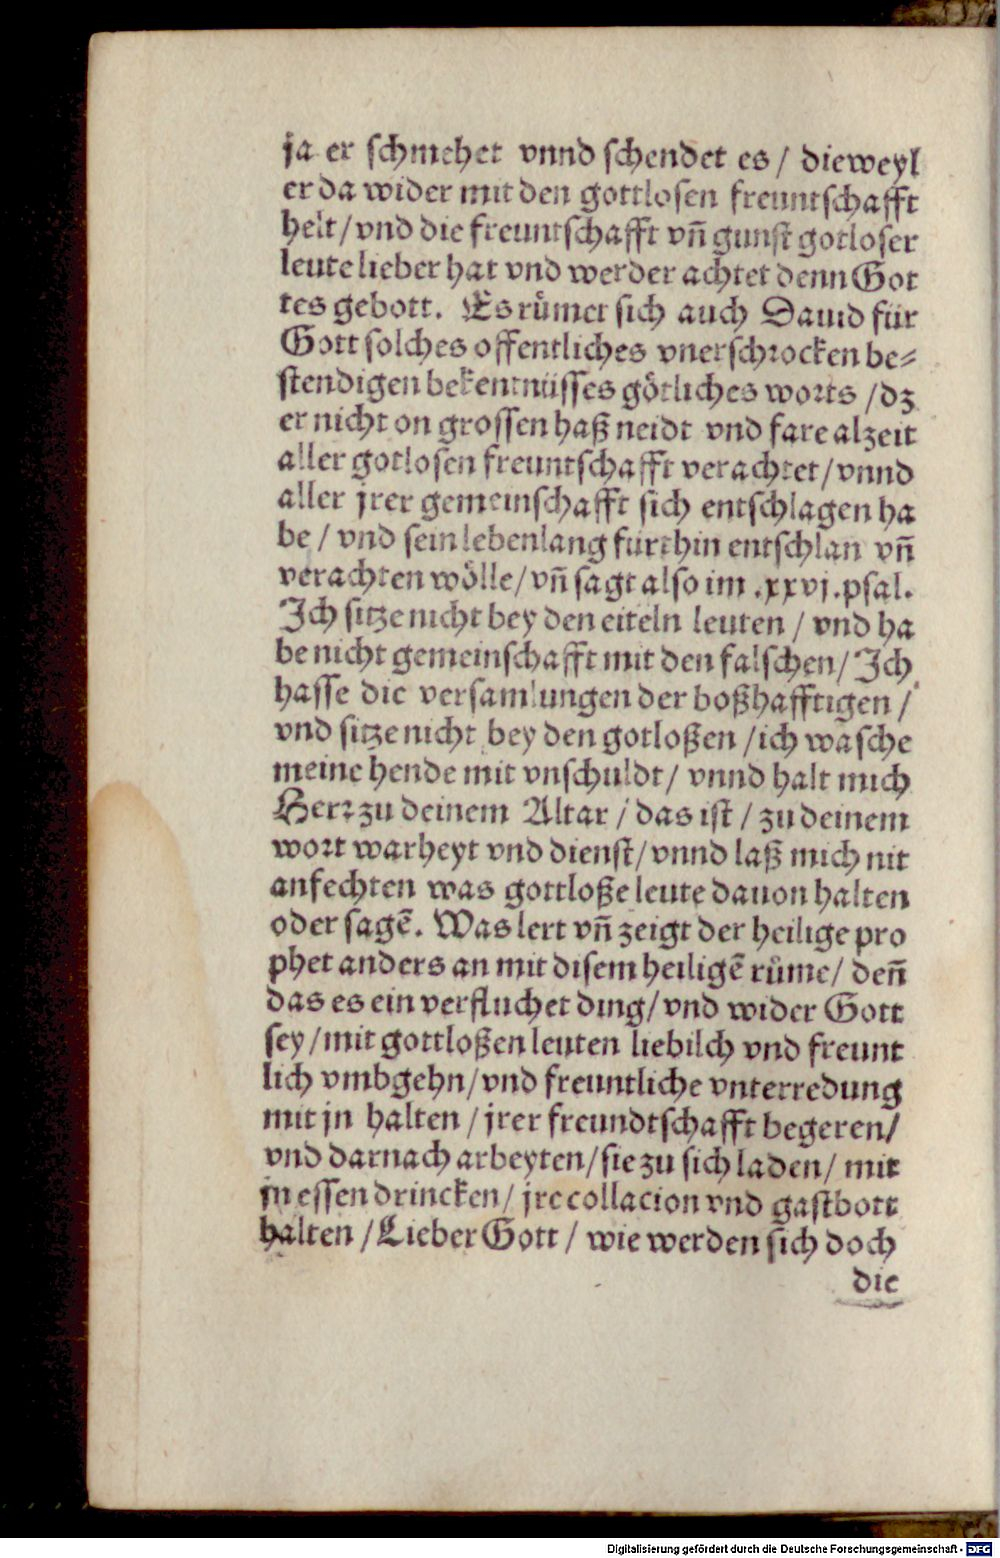 ja er schmehet vnnd schendet es / dieweyl
er da wider mit den gottlosen freuntschafft
helt / vnd die freuntschafft vñ gunst gotloser
leute lieber hat vnd werder achtet denn Got
tes gebott. Es růmet sich auch Dauid für
Gott solches offentliches vnerschrocken be⸗
stendigen bekentnüsses götliches worts / dz
er nicht on grossen haß neidt vnd fare alzeit
aller gotlosen freuntschafft verachtet / vnnd
aller jrer gemeinschafft sich entschlagen ha
be / vnd sein lebenlang fürthin entschlan vñ
verachten wölle / vñ sagt also im .xxvj. psal.
Ich sitze nicht bey den eiteln leuten / vnd ha
be nicht gemeinschafft mit den falschen / Ich
hasse die versamlungen der boßhafftigen /
vnd sitze nicht bey den gotloßen / ich wasche
meine hende mit vnschuldt / vnnd halt mich
Herr zu deinem Altar / das ist / zu deinem
wort warheyt vnd dienst / vnnd laß mich nit
anfechten was gottloße leute dauon halten
oder sagẽ. Was lert vñ zeigt der heilige pro
phet anders an mit disem heiligẽ růme / deñ
das es ein verfluchet ding / vnd wider Gott
sey / mit gottloßen leuten liebilch vnd freunt
lich vmbgehn / vnd freuntliche vnterredung
mit jn halten / jrer freundtschafft begeren /
vnd darnach arbeyten / sie zu sich laden / mit
jn essen drincken / jre collacion vnd gastbott
halten / Lieber Gott / wie werden sich doch
die
Digitalisierung gefördert durch die Deutsche Forschungsgemeinschaft - DFG